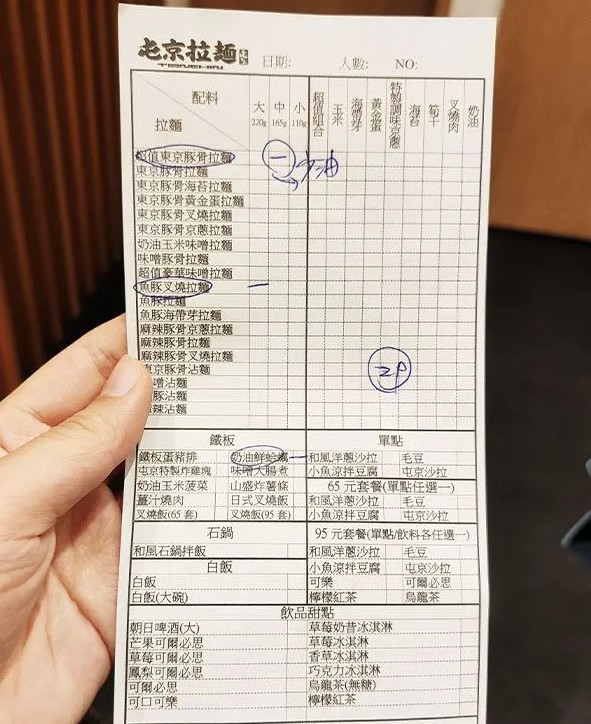 屯京拉麵 日期: 人數: NO:
配料 拉麵 大 220g 中 165g 小 110g 超值組合 玉米 海帶芽 黃金蛋 特製調味京蔥 海苔 筍干 叉燒肉 奶油
超值東京豚骨拉麵 一 少油
東京豚骨拉麵
東京豚骨海苔拉麵
東京豚骨黃金蛋拉麵
東京豚骨叉燒拉麵
東京豚骨京蔥拉麵
奶油玉米味噌拉麵
味噌豚骨拉麵
超值豪華味噌拉麵
魚豚叉燒拉麵 一
魚豚拉麵
魚豚海帶芽拉麵
麻辣豚骨京蔥拉麵
麻辣豚骨拉麵
麻辣豚骨叉燒拉麵
京豚骨沾麵 2P
噌沾麵
豚沾麵
辣沾麵
鐵板 單點
鐵板蛋豬排 奶油鮮蛤蠣 一 和風洋蔥沙拉 毛豆
屯京特製炸雞塊 味噌大腸煮 小魚涼拌豆腐 屯京沙拉
奶油玉米菠菜 山盛炸薯條 65 元套餐(單點任選一)
薑汁燒肉 日式叉燒飯 和風洋蔥沙拉 毛豆
叉燒飯(65 套) 叉燒飯(95 套) 小魚涼拌豆腐 屯京沙拉
石鍋 95 元套餐(單點/飲料各任選一)
和風石鍋拌飯 和風洋蔥沙拉 毛豆
白飯 小魚涼拌豆腐 屯京沙拉
白飯 可樂 可爾必思
白飯(大碗) 檸檬紅茶 烏龍茶
飲品甜點
朝日啤酒(大) 草莓奶昔冰淇淋
芒果可爾必思 草莓冰淇淋
草莓可爾必思 香草冰淇淋
鳳梨可爾必思 巧克力冰淇淋
可爾必思 烏龍茶(無糖)
可口可樂 檸檬紅茶